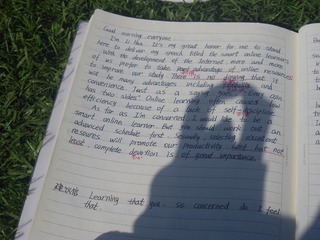 Good morning everyone
I'm Li Hua. It's my great honor for me to stand
here to deliver my speech titled the smart online learners
with the development of the Internet more and more
of us prefer to take advantage of online resources
to improve our study. There is no denying that it
has many advantages including
convenience. Just as a saying goes "A coin
has two sides" Online learning can cause low
efficiency because of a lack of self-discipline
As far as I'm concerned, I would like to be a
smart online learner. But we should work out an
advanced schedule first. Secondly, selecting
resources will promote our productivity. Last but not
least, complete devotion is of great importance.
Learning that you so concerned do I feel
that